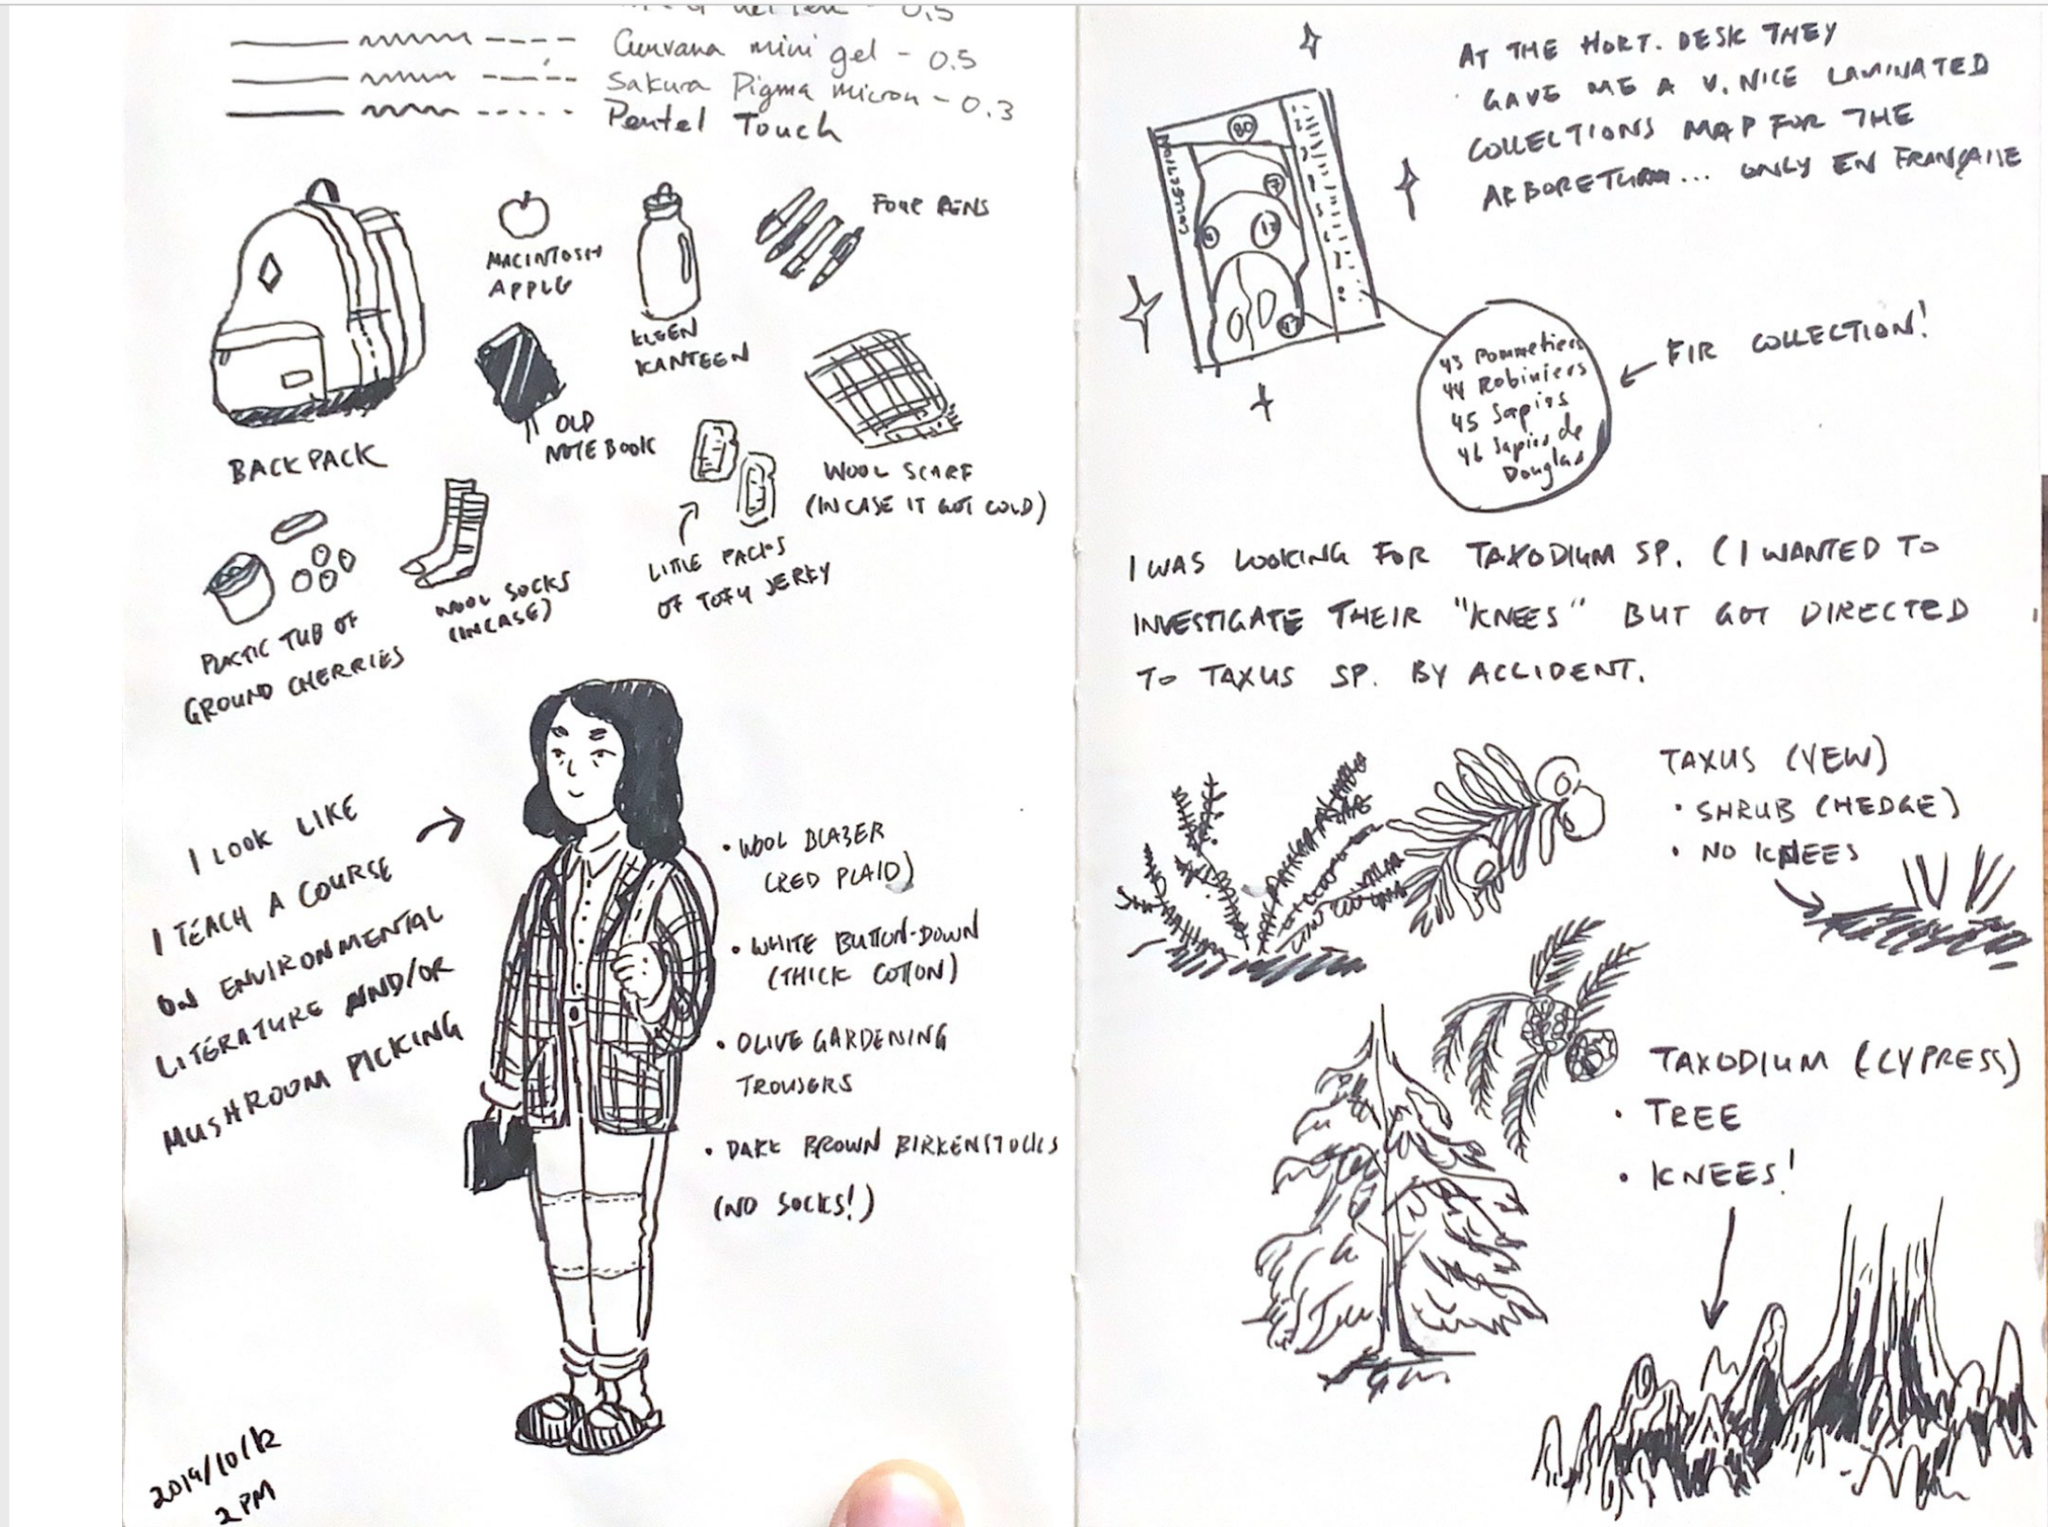 0.5
mini gel - 0.5
Sakura Pigma micron - 0.3
Pentel Touch
BACKPACK
MACINTOSH
APPLE
KLEEN
KANTEEN
FOUR PENS
OLD
NOTEBOOK
WOOL SCARF
(INCASE IT GOT COLD)
LITTLE PACKS
OF TOFU JERKY
WOOL SOCKS
(INCASE)
PLASTIC TUB OF
GROUND CHERRIES
I LOOK LIKE
I TEACH A COURSE
ON ENVIRONMENTAL
LITERATURE AND/OR
MUSHROOM PICKING
• WOOL BLAZER
(RED PLAID)
• WHITE BUTTON-DOWN
(THICK COTTON)
• OLIVE GARDENING
TROUSERS
• DARK BROWN BIRKENSTOCKS
(NO SOCKS!)
2019/10/12
2 PM
AT THE HORT. DESK THEY
GAVE ME A V. NICE LAMINATED
COLLECTIONS MAP FOR THE
ARBORETUM... ONLY EN FRANÇAISE
COLLECTION
43 Pommetiers
44 Robiniers
45 Sapins
46 Sapins de
Douglas
FIR COLLECTION!
I WAS LOOKING FOR TAXODIUM SP. (I WANTED TO
INVESTIGATE THEIR "KNEES" BUT GOT DIRECTED
TO TAXUS SP. BY ACCIDENT.
TAXUS (YEW)
• SHRUB (HEDGE)
• NO KNEES
TAXODIUM (CYPRESS)
• TREE
• KNEES!